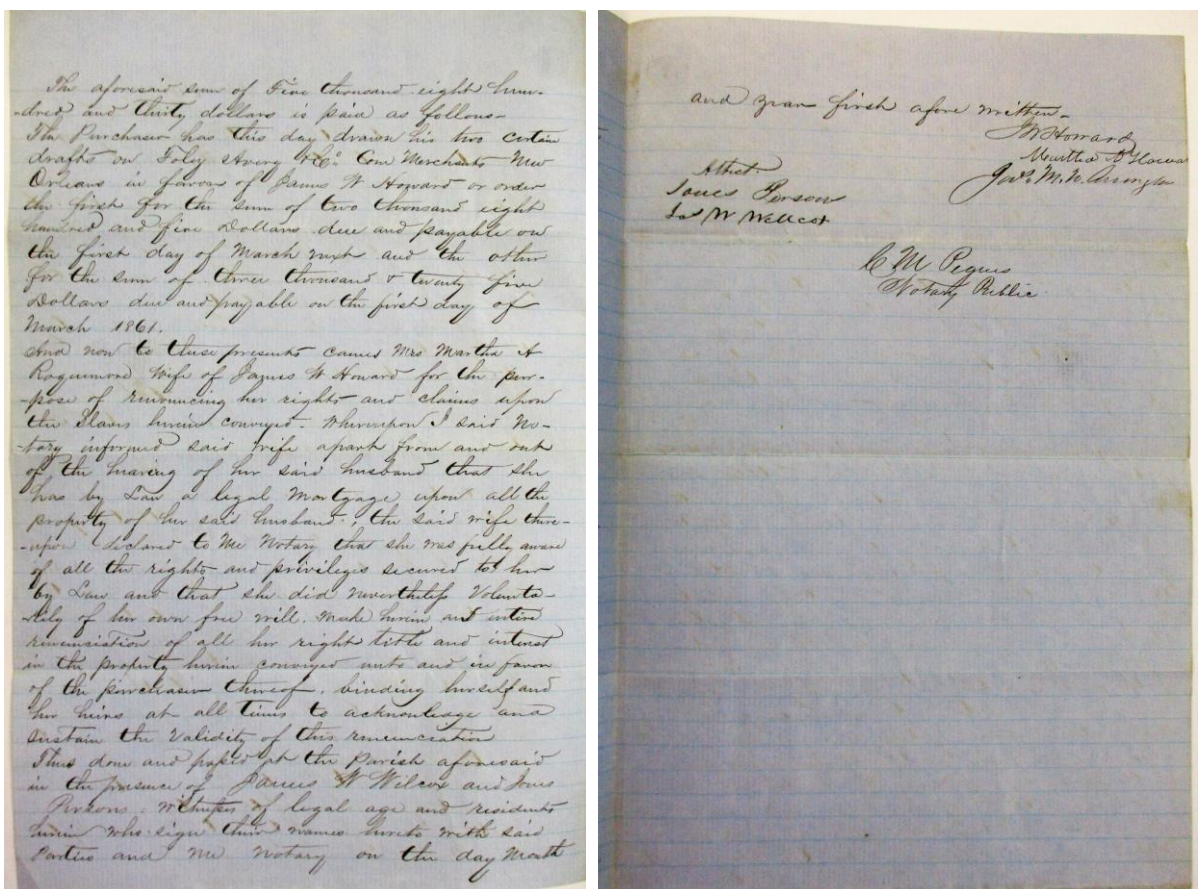 The aforesaid sum of Five thousand eight hun-
-dred and thirty dollars is paid as follows-
The Purchaser has this day drawn his two certain
drafts on Foley Avery & Co. Com Merchants New
Orleans in favour of James W Howard or order
the first for the sum of two thousand eight
hundred and five Dollars due and payable on
the first day of March next and the other
for the sum of three thousand & twenty five
Dollars due and payable on the first day of
March 1861.
And now to these presents comes Mrs Martha A
Roquemore Wife of James W Howard for the pur-
-pose of renouncing her rights and claims upon
the Slaves herein conveyed. Whereupon I said No-
-tary informed said wife apart from and out
of the hearing of her said husband that she
has by Law a legal Mortgage upon all the
property of her said husband., the said wife there-
-upon declared to Me Notary that she was fully aware
of all the rights and privileges secured to her
by Law and that she did nevertheless Volunta-
-rily of her own free will. Make herein and entire
renunciation of all her right title and interest
in the property herein conveyed unto and in favor
of the purchaser thereof. binding herself and
her heirs at all times to acknowledge and
sustain the Validity of this renunciation
Thus done and passed at the Parish aforesaid
in the presence of James W Wilcox and Jones
Persons. witnesses of legal age and residents
herein who sign their names hereto with said
Parties and me Notary on the day Month
and year first afore written-
JW Howard
Martha A Howa
M. W.
Attest.
Jones Person
Jas W Willcox
C M Pegues
Notary Public